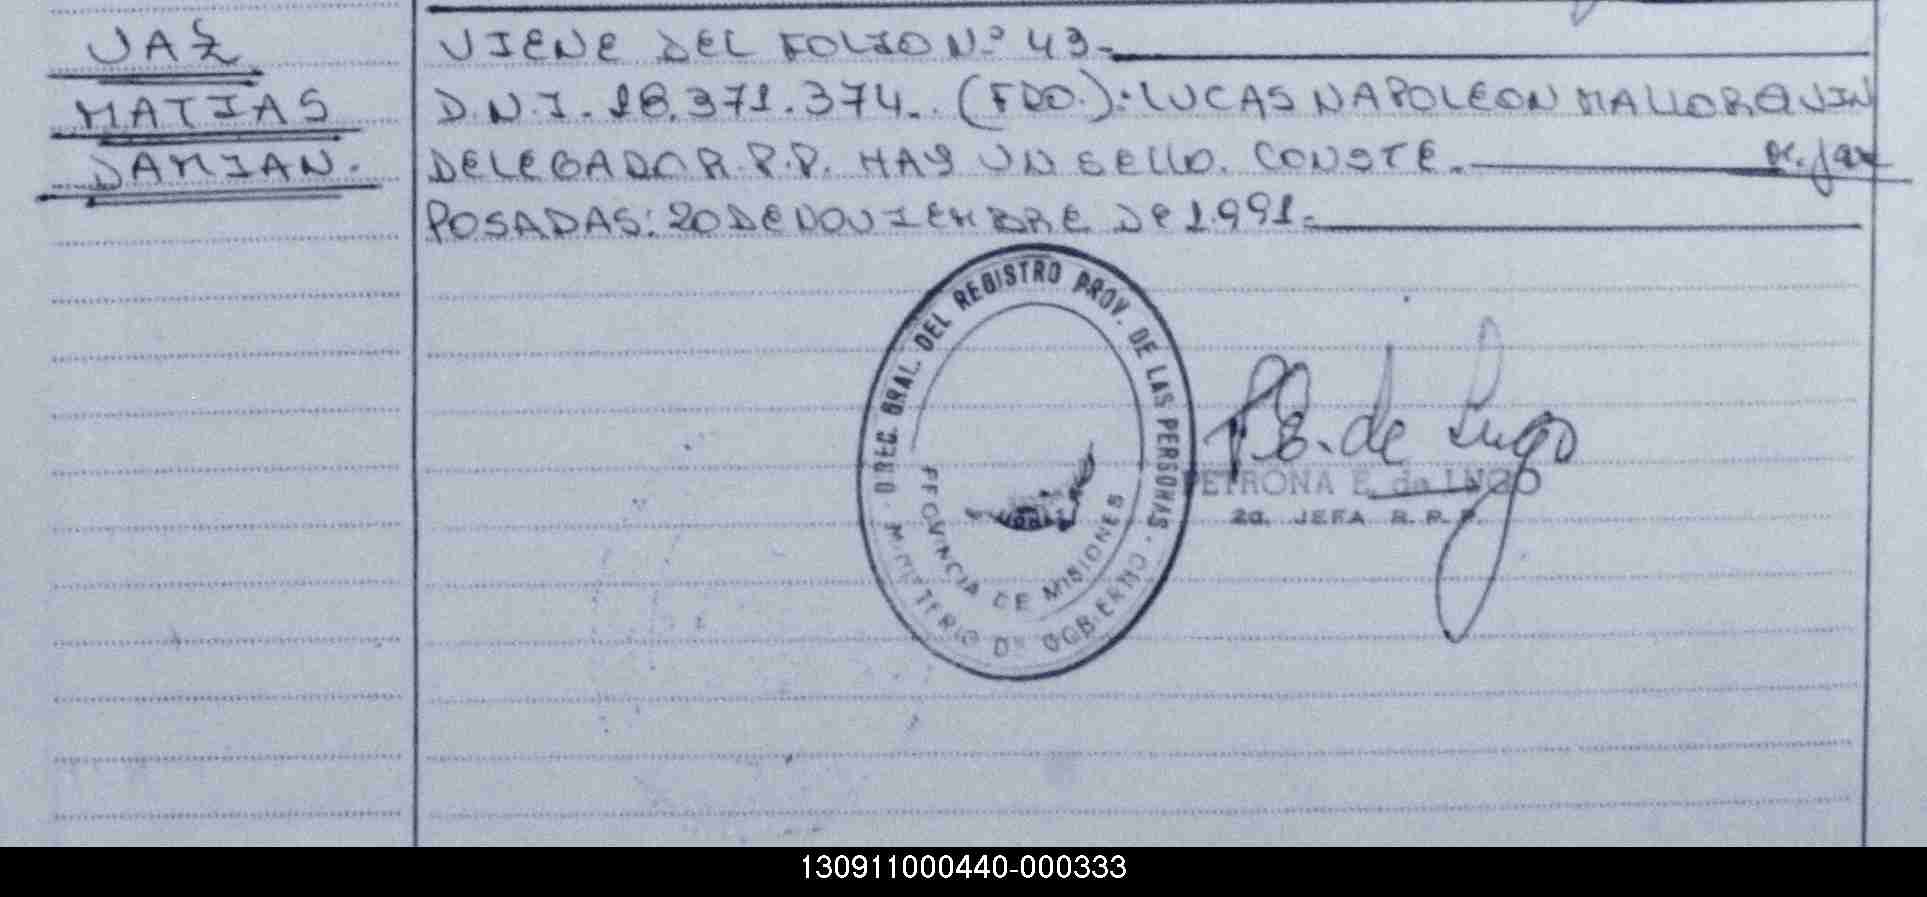 VAZ
MATIAS
DAMIAN.
VIENE DEL FOLIO N.º 43-
D.N.I. 18.371.374. (FDO.): LUCAS NAPOLEON MALLORQUIN
DELEGADO R.P.P. HAY UN SELLO. CONSTE.
POSADAS: 20 DE NOVIEMBRE DE 1.991.
DIREC. GRAL. DEL REGISTRO PROV. DE LAS PERSONAS -
PROVINCIA DE MISIONES
MINISTERIO DE GOBIERNO
P. E. de Lugo
PETRONA E. de LUGO
2a. JEFA R. P. P.
130911000440-000333